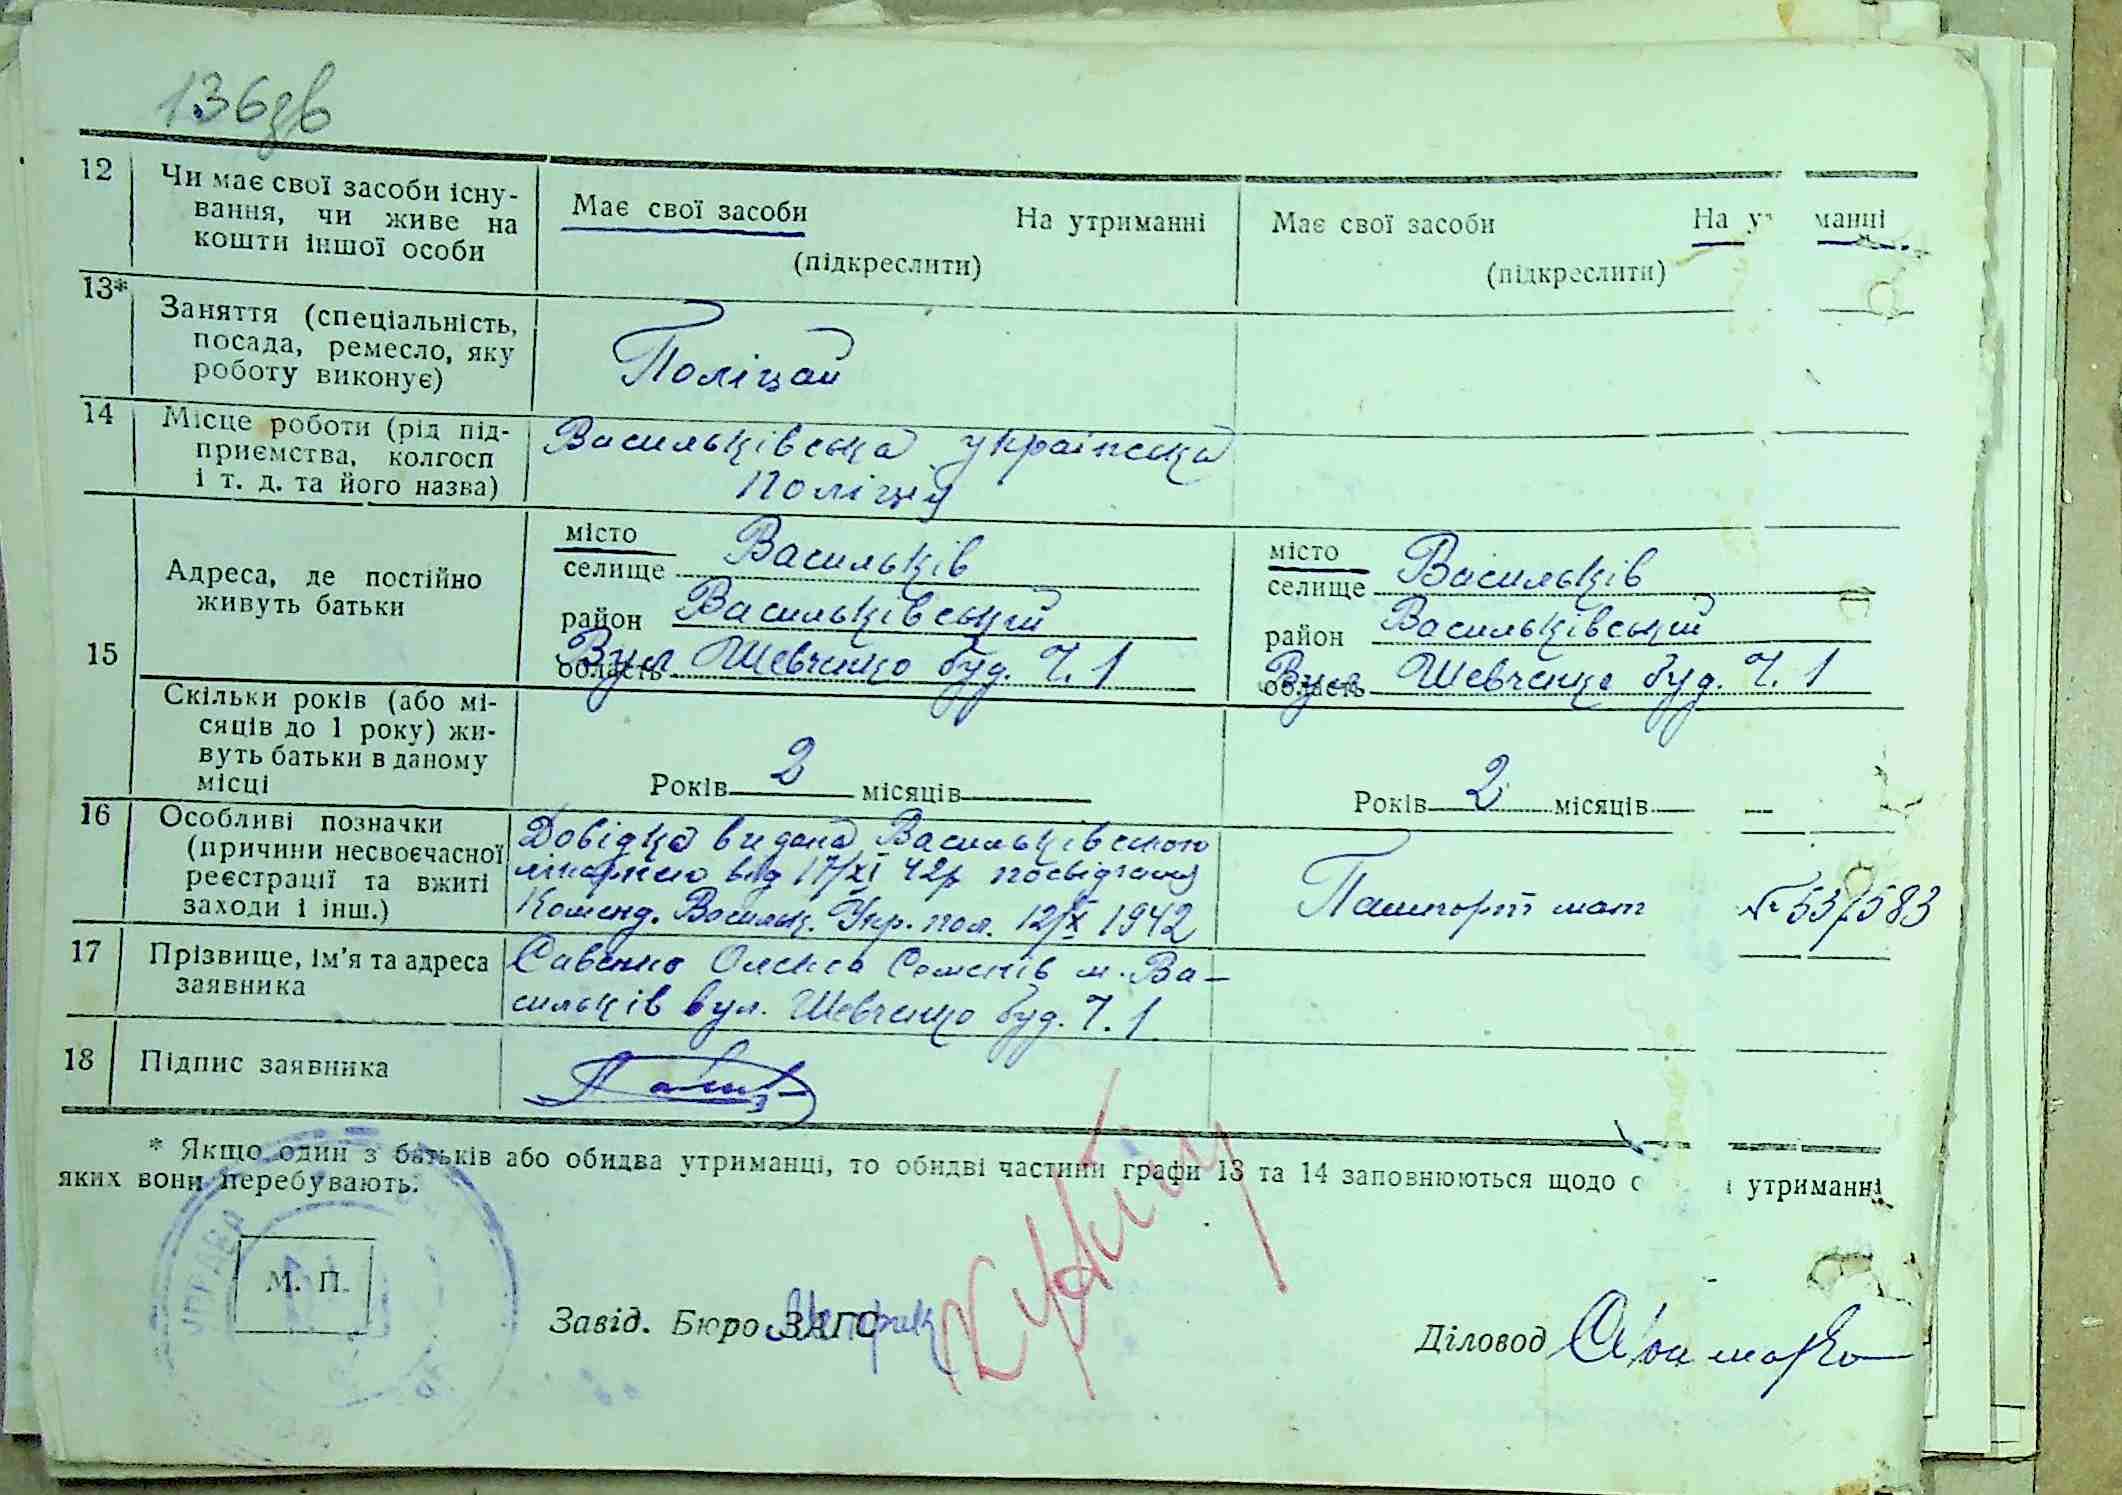 136зв
12 Чи має свої засоби існу-
вання, чи живе на
кошти іншої особи
Має свої засоби На утриманні
(підкреслити)
Має свої засоби На ут манні
(підкреслити)
13* Заняття (спеціальність,
посада, ремесло, яку
роботу виконує)
Поліцай
14 Місце роботи (рід під-
приємства, колгосп
і т. д. та його назва)
Васильківська українська
Поліція
15
Адреса, де постійно
живуть батьки
місто
селище Васильків
район Васильківський
область Вул Шевченко буд. Ч. 1
місто
селище Васильків
район Васильківський
область Вул Шевченко буд. Ч. 1
Скільки років (або мі-
сяців до 1 року) жи-
вуть батьки в даному
місці
Років 2 місяців
Років 2 місяців —
16 Особливі позначки
(причини несвоєчасної
реєстрації та вжиті
заходи і інш.)
Довідка видана Васильківською
лікарнею від 17/XI 42р посвідчення
Коменд. Васильк. Укр. пол. 12/X 1942
Пашпорт мат № 537583
17 Прізвище, ім'я та адреса
заявника
Савенко Олекса Семенів м. Ва-
сильків вул. Шевченко буд. Ч. 1
18 Підпис заявника
* Якщо один з батьків або обидва утриманці, то обидві частини графи 13 та 14 заповнюються щодо о і утриманні
яких вони перебувають.
УПРАВА
М. П.
Завід. Бюро ЗАГС
Діловод